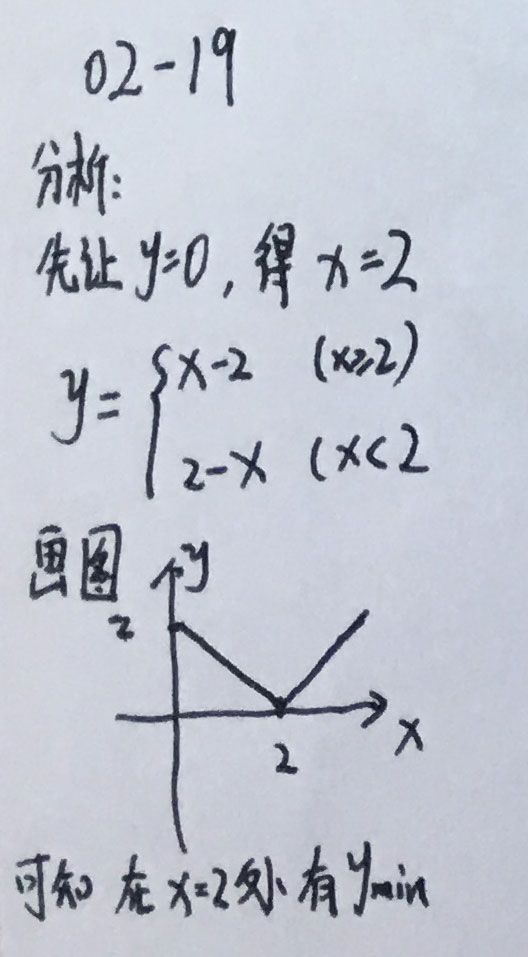 02-19
分析:
先让 y=0, 得 x=2
y= { x-2 (x≥2)
2-x (x<2
画图
y
2
2
x
可知 在 x=2处 有 ymin